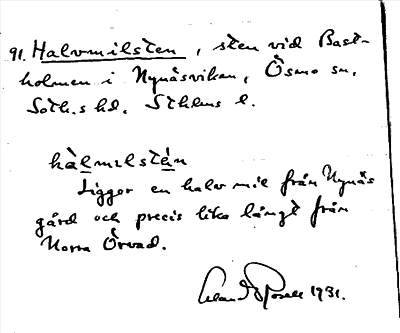 91. Halvmilsten, sten vid Bast-
holmen i Nynäsviken, Ösmo sn,
Soth.s hd. Sthlms l.
hàlmılstén
Ligger en halv mil från Nynäs
gård och precis lika långt från
Norra Örvad.
1931.